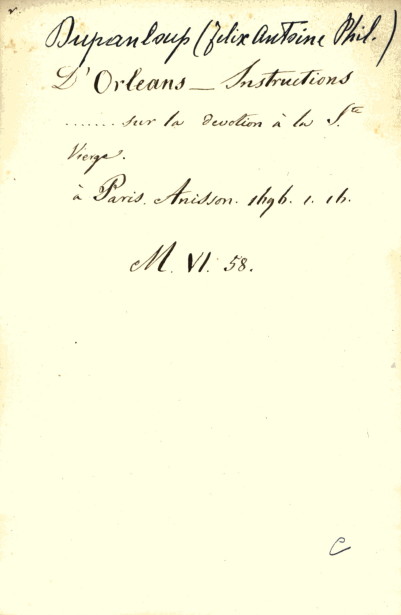 Dupanloup (Felix Antoine Phil.)
D'Orleans _ Instructions
....... sur la devotion à la Ste
Vierge.
à Paris. Anisson. 1696. 1. 16.
M. VI. 58.
C